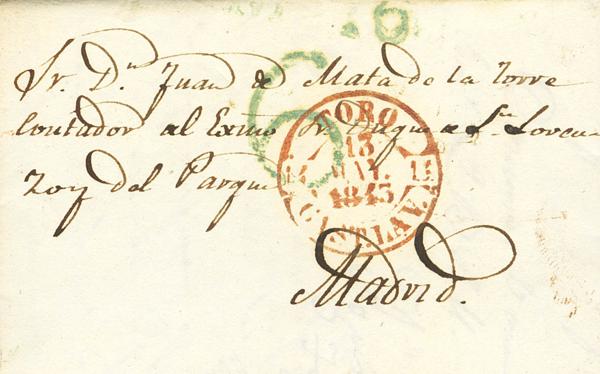 Sr. Dn. Juan de Mata de la Torre
Contador al Exmo Sr. Duque de Sn. Loren-
zo y del Parque
Madrid.
TORO
13
MAY.
1843
CAST. LA V.